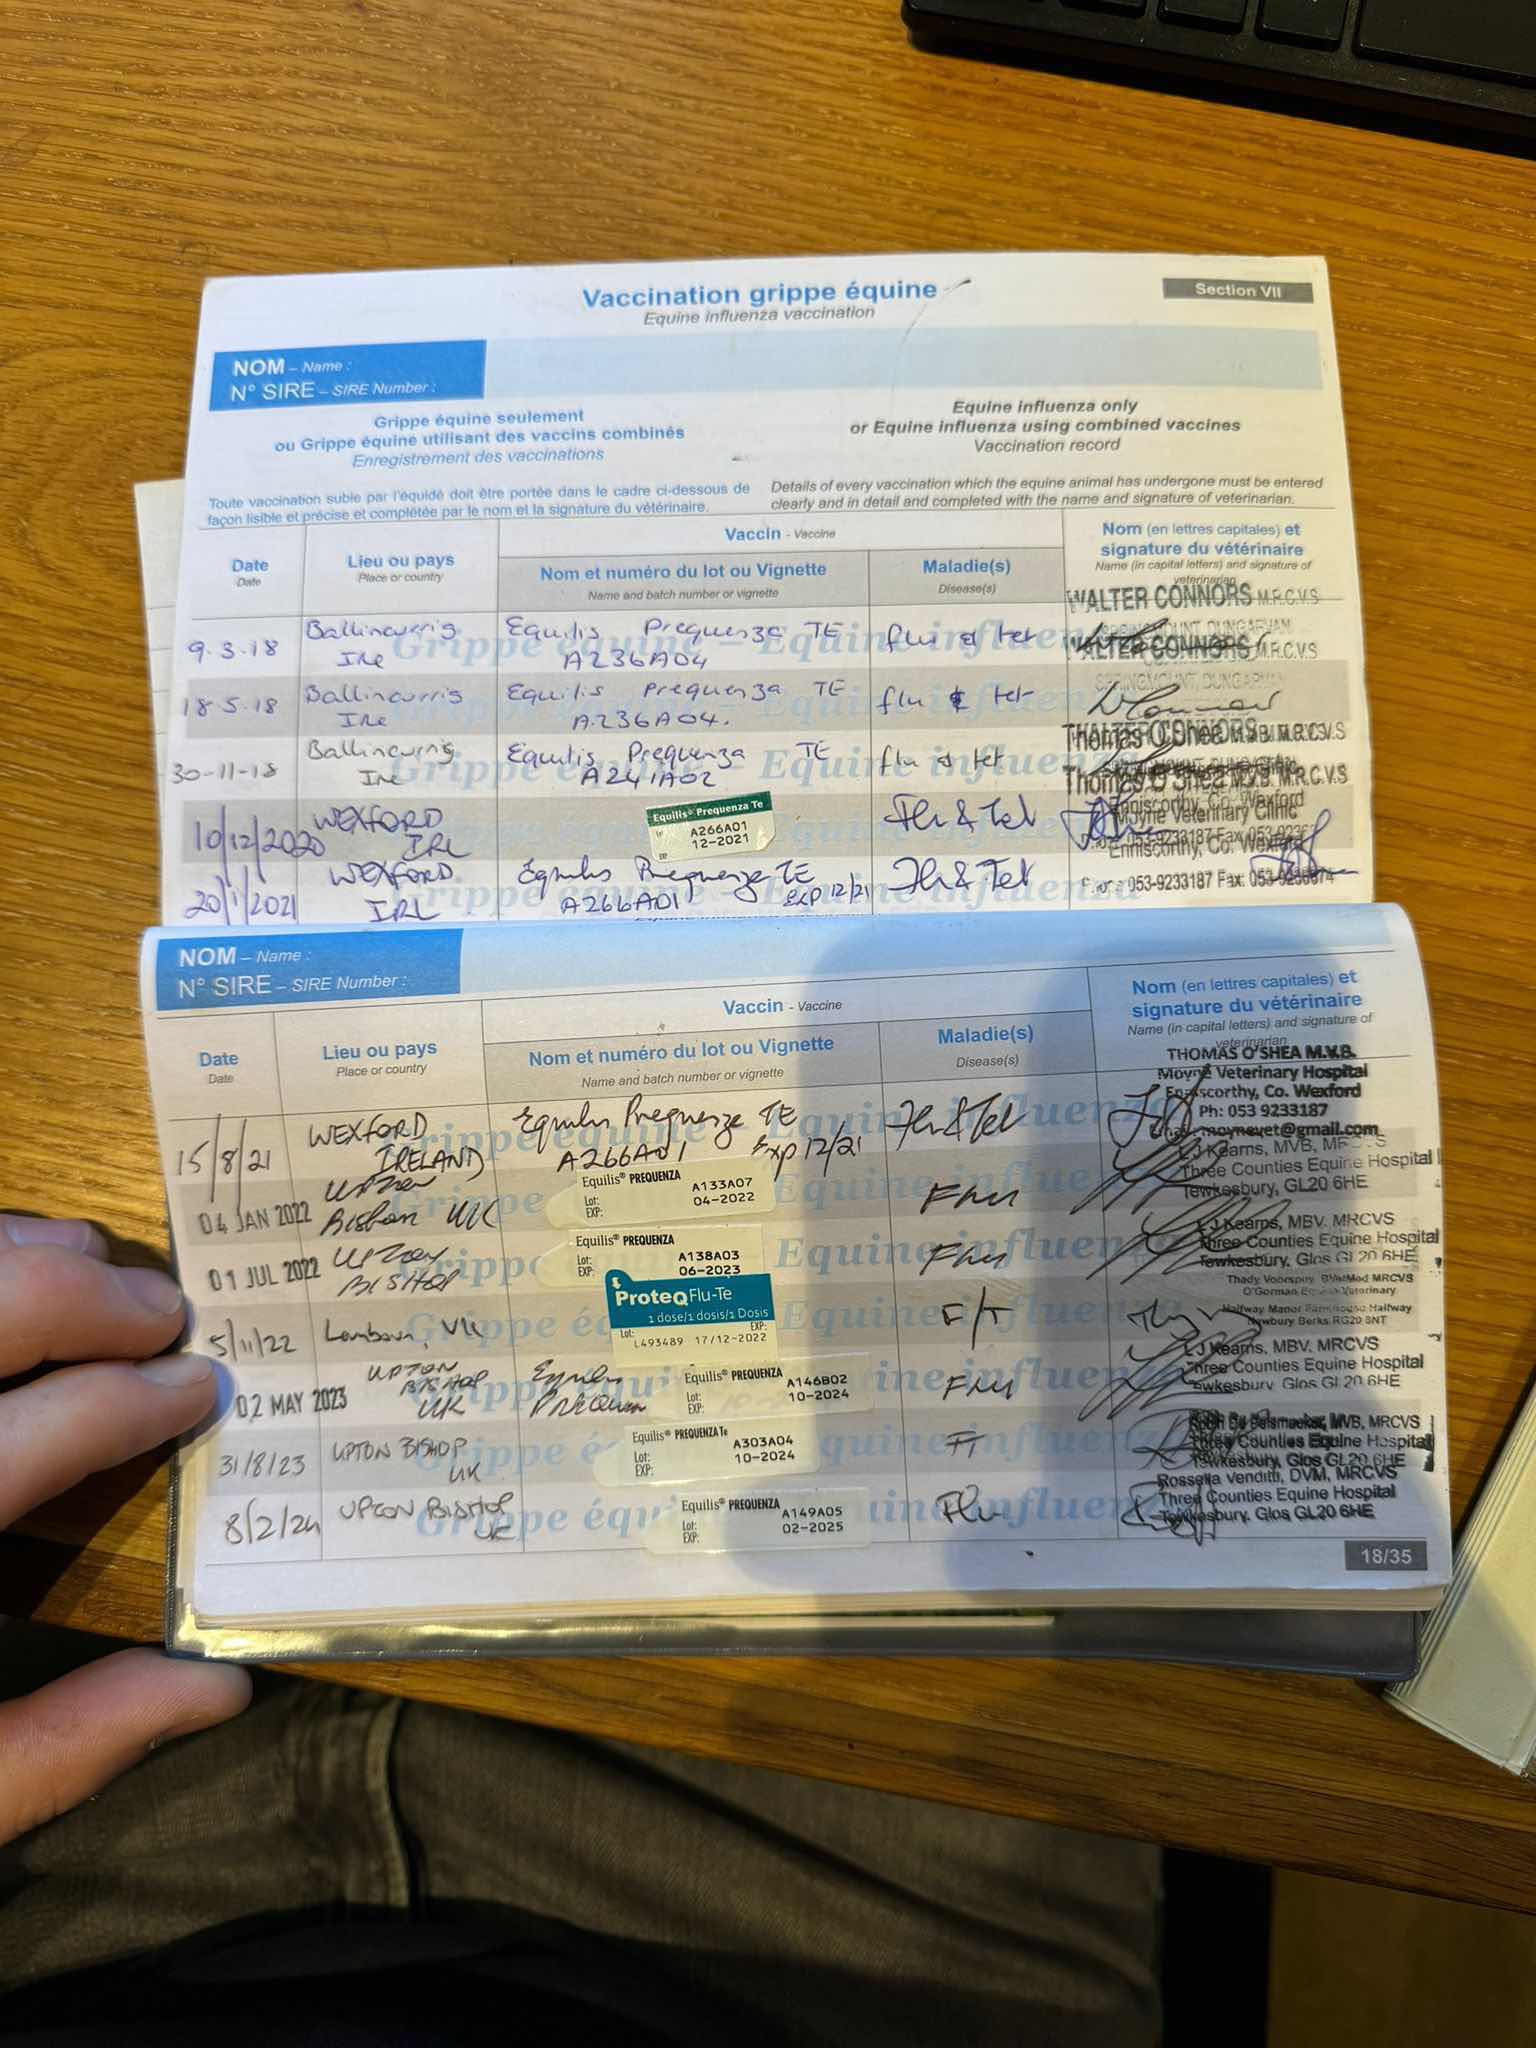 Vaccination grippe équine
Equine influenza vaccination
Section VII
NOM – Name :
N° SIRE – SIRE Number :
Grippe équine seulement
ou Grippe équine utilisant des vaccins combinés
Enregistrement des vaccinations
Equine influenza only
or Equine influenza using combined vaccines
Vaccination record
Toute vaccination subie par l'équidé doit être portée dans le cadre ci-dessous de
façon lisible et précise et complétée par le nom et la signature du vétérinaire.
Details of every vaccination which the equine animal has undergone must be entered
clearly and in detail and completed with the name and signature of veterinarian.
Date
Date
Lieu ou pays
Place or country
Vaccin - Vaccine
Nom et numéro du lot ou Vignette
Name and batch number or vignette
Maladie(s)
Disease(s)
Nom (en lettres capitales) et
signature du vétérinaire
Name (in capital letters) and signature of
veterinarian
9.3.18 Ballincurrig IRe Equilis Prequenza TE A236A04 flu & tet WALTER CONNORS M.R.C.V.S
SPRINGMOUNT, DUNGARVAN
18.5.18 Ballincurrig IRe Equilis Prequenza TE A236A04. flu & tet WALTER CONNORS M.R.C.V.S
SPRINGMOUNT, DUNGARVAN
30-11-18 Ballincurrig Ire Equilis Prequenza TE A241A02 flu & tet
Thomas O'Shea M.V.B. M.R.C.V.S
10/12/2020 WEXFORD IRL Equilis® Prequenza Te A266A01 12-2021 Flu & Tet
Thomas O'Shea M.V.B. M.R.C.V.S
Moyne Veterinary Clinic
Enniscorthy, Co. Wexford
20/1/2021 WEXFORD IRL Equilis Prequenza TE A266A01 EXP 12/21 Flu & Tet
053-9233187 Fax: 053
NOM – Name :
N° SIRE – SIRE Number :
Date
Date
Lieu ou pays
Place or country
Vaccin - Vaccine
Nom et numéro du lot ou Vignette
Name and batch number or vignette
Maladie(s)
Disease(s)
Nom (en lettres capitales) et
signature du vétérinaire
Name (in capital letters) and signature of
veterinarian
15/8/21 WEXFORD IRELAND Equilis Prequenza TE A266A01 Exp 12/21 Flu & Tet
THOMAS O'SHEA M.V.B.
Moyne Veterinary Hospital
Enniscorthy, Co. Wexford
Ph: 053 9233187
Email: moynevet@gmail.com
04 JAN 2022 Upton Bishop UK Equilis® PREQUENZA Lot: EXP: A133A07 04-2022 Flu
J Kearns, MBV, MRCVS
Three Counties Equine Hospital
Tewkesbury, GL20 6HE
01 JUL 2022 UPTON BISHOP Equilis® PREQUENZA Lot: EXP: A138A03 06-2023 Flu
J Kearns, MBV. MRCVS
Three Counties Equine Hospital
Tewkesbury, Glos GL20 6HE
5/11/22 Lambourn, UK ProteqFlu-Te 1 dose/1 dosis/1 Dosis Lot: EXP: L493489 17/12-2022 F/T
Thady Voorspuy BVetMed MRCVS
O'Gorman Equine Veterinary
Halfway Manor Farmhouse Halfway
Newbury Berks RG20 8NT
02 MAY 2023 UPTON BISHOP UK Equilis Prequenza Equilis® PREQUENZA Lot: EXP: A146B02 10-2024 Flu
J Kearns, MBV. MRCVS
Three Counties Equine Hospital
Tewkesbury, Glos GL20 6HE
31/8/23 UPTON BISHOP UK Equilis® PREQUENZA Te Lot: EXP: A303A04 10-2024 FT
MVB, MRCVS
Three Counties Equine Hospital
Tewkesbury, Glos GL20 6HE
8/2/24 UPTON BISHOP UK Equilis® PREQUENZA Lot: EXP: A149A05 02-2025 Flu
Rossella Venditti, DVM, MRCVS
Three Counties Equine Hospital
Tewkesbury. Glos GL20 6HE
18/35